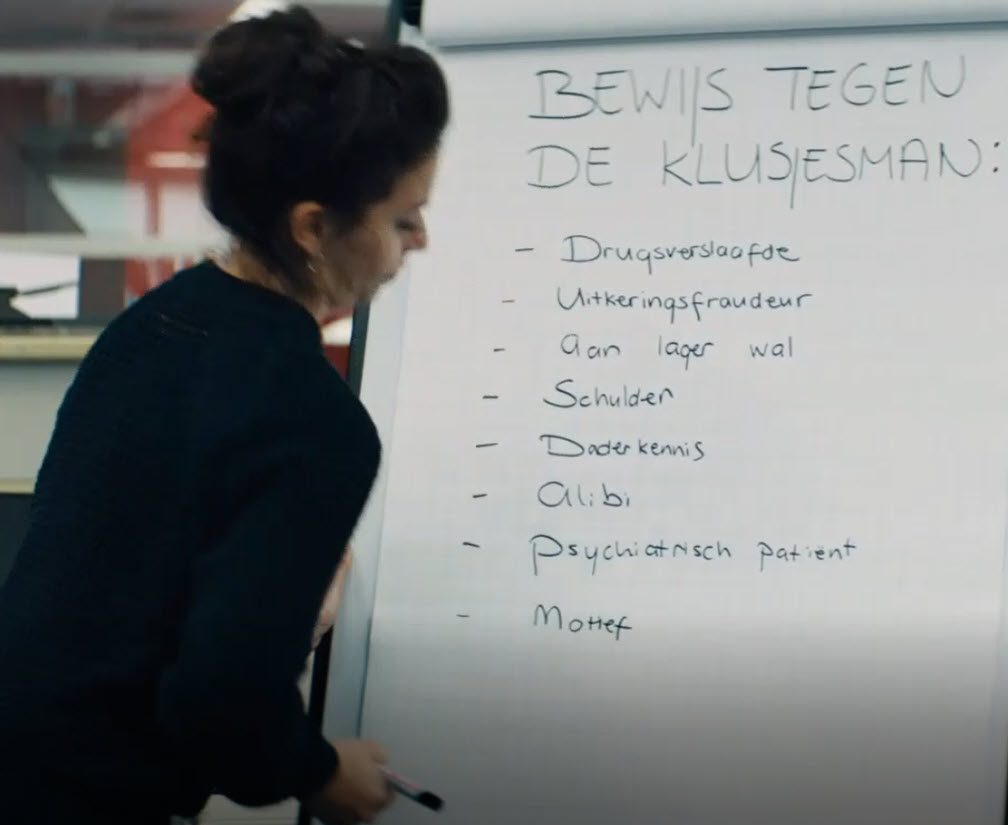 BEWIJS TEGEN
DE KLUSJESMAN:
- Drugsverslaafde
- Uitkeringsfraudeur
- Aan lager wal
- Schulden
- Daderkennis
- Alibi
- Psychiatrisch patiënt
- Motief